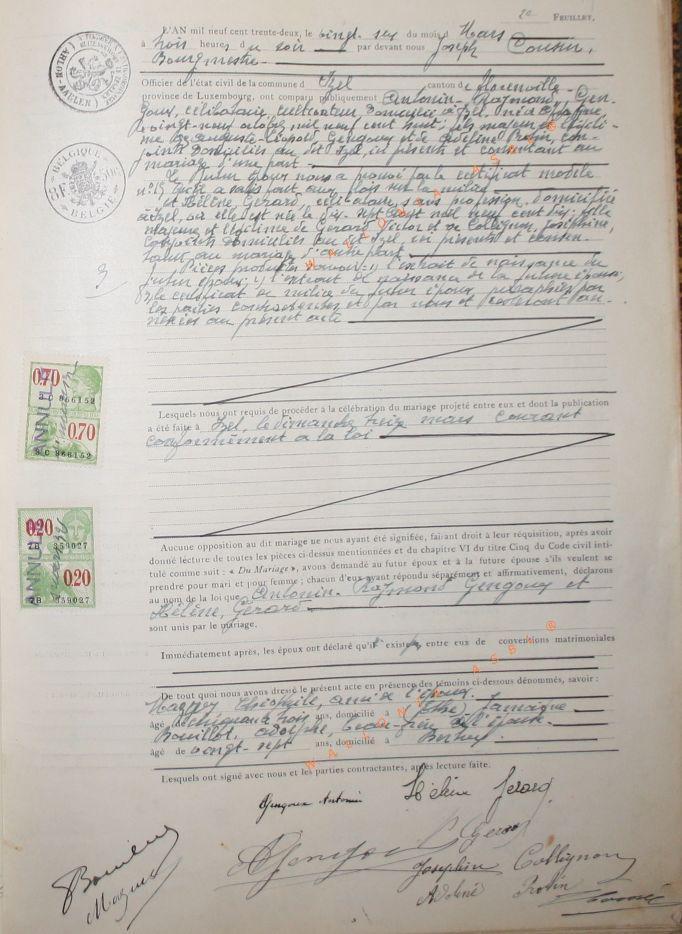 20 FEUILLET.
L'AN mil neuf cent trente-deux, le vingt six du mois d Mars
à trois heures du soir par devant nous Joseph Cousin,
Bourgmestre
Officier de l'état civil de la commune d Izel canton de Florenville
province de Luxembourg, ont comparu publiquement Antonin-Raymond, Gen-
goux, célibataire cultivateur domicilié à Izel, né à
vingt-neuf octobre mil neuf cent huit; fils majeur et légiti-
me de Auguste-Léopold Gengoux et de Adeline, con-
joints domiciliés au dit Izel, ici présents et consentant au
mariage d'une part
Le futur époux nous a prouvé par le certificat modèle
n° 15 qu'il a satisfait aux lois sur la milice
et Hélène, Gerard, célibataire, sans profession, domiciliée
à Izel, où elle est née le dix-sept août mil neuf cent dix; fille
majeure et légitime de Gerard Victor et de Collignon, Joséphine,
conjoints domiciliés au dit Izel, ici présents et consen-
tant au mariage d'autre part
Pièces produites savoir: 1) l'extrait de naissance du
futur époux; 2) l'extrait de naissance de la future épouse;
3) le certificat de milice du futur époux, paraphées par
les parties contractantes et par nous et resteront an-
nexées au présent acte
Lesquels nous ont requis de procéder à la célébration du mariage projeté entre eux et dont la publication
a été faite à Izel, le dimanche treize mars courant
conformément à la loi
Aucune opposition au dit mariage ne nous ayant été signifiée, faisant droit à leur réquisition, après avoir
donné lecture de toutes les pièces ci-dessus mentionnées et du chapitre VI du titre Cinq du Code civil inti-
tulé comme suit : « Du Mariage », avons demandé au futur époux et à la future épouse s'ils veulent se
prendre pour mari et pour femme ; chacun d'eux ayant répondu séparément et affirmativement, déclarons
au nom de la loi que Antonin-Raymond Gengoux et
Hélène, Gerard
sont unis par le mariage.
Immédiatement après, les époux ont déclaré qu'il existe pas entre eux de conventions matrimoniales
De tout quoi nous avons dressé le présent acte en présence des témoins ci-dessous dénommés, savoir :
Théophile, ami de l'époux
âgé de cinquante trois ans, domicilié à (Ethe) Jamoigne
Bouillot, Adolphe, beau-frère de l'épouse
âgé de vingt-sept ans, domicilié à
Lesquels ont signé avec nous et les parties contractantes, après lecture faite.
Gengoux Antonin Hélène Gerard
Gengoux Gerard
Joséphine Collignon
Adeline
BELGIQUE
BELGIE
ANNULÉ
0.70
3C 866152
0.70
3C 866152
ANNULÉ
0.20
2B 359027
0.20
2B 359027
3
WALLONIA ASBL ®
WALLONIA ASBL ®